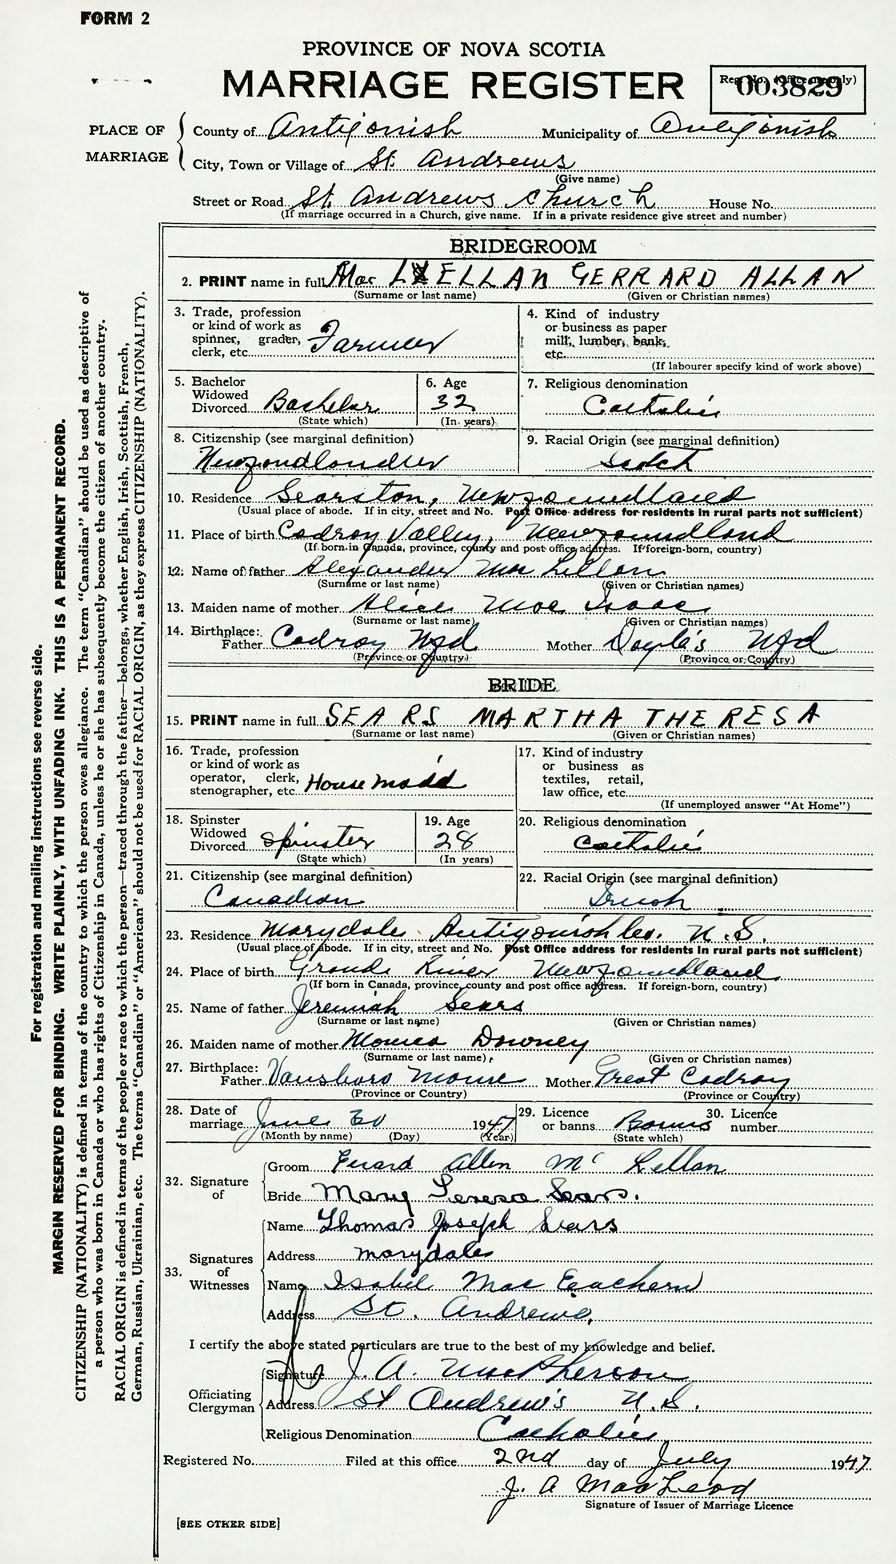 FORM 2
PROVINCE OF NOVA SCOTIA
MARRIAGE REGISTER
Reg. No. (Office use only)
003829
PLACE OF MARRIAGE
County of Antigonish Municipality of Antigonish
City, Town or Village of St. Andrews
(Give name)
Street or Road St. Andrews Church House No.
(If marriage occurred in a Church, give name. If in a private residence give street and number)
BRIDEGROOM
2. PRINT name in full Mac LELLAN GERRARD ALLAN
(Surname or last name) (Given or Christian names)
3. Trade, profession or kind of work as spinner, grader, clerk, etc. Farmer
4. Kind of industry or business as paper mill, lumber, bank, etc.
(If labourer specify kind of work above)
5. Bachelor Widowed Divorced Bachelor
(State which)
6. Age 32
(In years)
7. Religious denomination Catholic
8. Citizenship (see marginal definition) Newfoundlander
9. Racial Origin (see marginal definition) Scotch
10. Residence Searston, Newfoundland
(Usual place of abode. If in city, street and No. Post Office address for residents in rural parts not sufficient)
11. Place of birth Codroy Valley, Newfoundland
(If born in Canada, province, county and post office address. If foreign-born, country)
12. Name of father Alexander Mac Lellan
(Surname or last name) (Given or Christian names)
13. Maiden name of mother Alice Mac Isaac
(Surname or last name) (Given or Christian names)
14. Birthplace: Father Codroy Nfd Mother Doyle's Nfd
(Province or Country) (Province or Country)
BRIDE
15. PRINT name in full SEARS MARTHA THERESA
(Surname or last name) (Given or Christian names)
16. Trade, profession or kind of work as operator, clerk, stenographer, etc. House maid
17. Kind of industry or business as textiles, retail, law office, etc.
(If unemployed answer "At Home")
18. Spinster Widowed Divorced Spinster
(State which)
19. Age 28
(In years)
20. Religious denomination Catholic
21. Citizenship (see marginal definition) Canadian
22. Racial Origin (see marginal definition) Irish
23. Residence Marydale Antigonish Co. N.S.
(Usual place of abode. If in city, street and No. Post Office address for residents in rural parts not sufficient)
24. Place of birth Grand River Newfoundland
(If born in Canada, province, county and post office address. If foreign-born, country)
25. Name of father Jeremiah Sears
(Surname or last name) (Given or Christian names)
26. Maiden name of mother Monica Downey
(Surname or last name) (Given or Christian names)
27. Birthplace: Father Vansboro Maine Mother Great Codroy
(Province or Country) (Province or Country)
28. Date of marriage June 30 1947
(Month by name) (Day) (Year)
29. Licence or banns Banns
(State which)
30. Licence number
32. Signature of
Groom Allan Mc Lellan
Bride Mary Teresa Sears.
33. Signatures of Witnesses
Name Thomas Joseph Sears
Address Marydale
Name Isabel Mac Eachern
Address St. Andrews.
I certify the above stated particulars are true to the best of my knowledge and belief.
Officiating Clergyman
Signature J. A. MacPherson
Address St Andrew's N.S.
Religious Denomination Catholic
Registered No. Filed at this office 2nd day of July 1947
J. A MacLeod
Signature of Issuer of Marriage Licence
[SEE OTHER SIDE]
For registration and mailing instructions see reverse side.
MARGIN RESERVED FOR BINDING. WRITE PLAINLY, WITH UNFADING INK. THIS IS A PERMANENT RECORD.
CITIZENSHIP (NATIONALITY) is defined in terms of the country to which the person owes allegiance. The term "Canadian" should be used as descriptive of
a person who was born in Canada or who has rights of Citizenship in Canada, unless he or she has subsequently become the citizen of another country.
RACIAL ORIGIN is defined in terms of the people or race to which the person—traced through the father—belongs, whether English, Irish, Scottish, French,
German, Russian, Ukrainian, etc. The terms "Canadian" or "American" should not be used for RACIAL ORIGIN, as they express CITIZENSHIP (NATIONALITY).